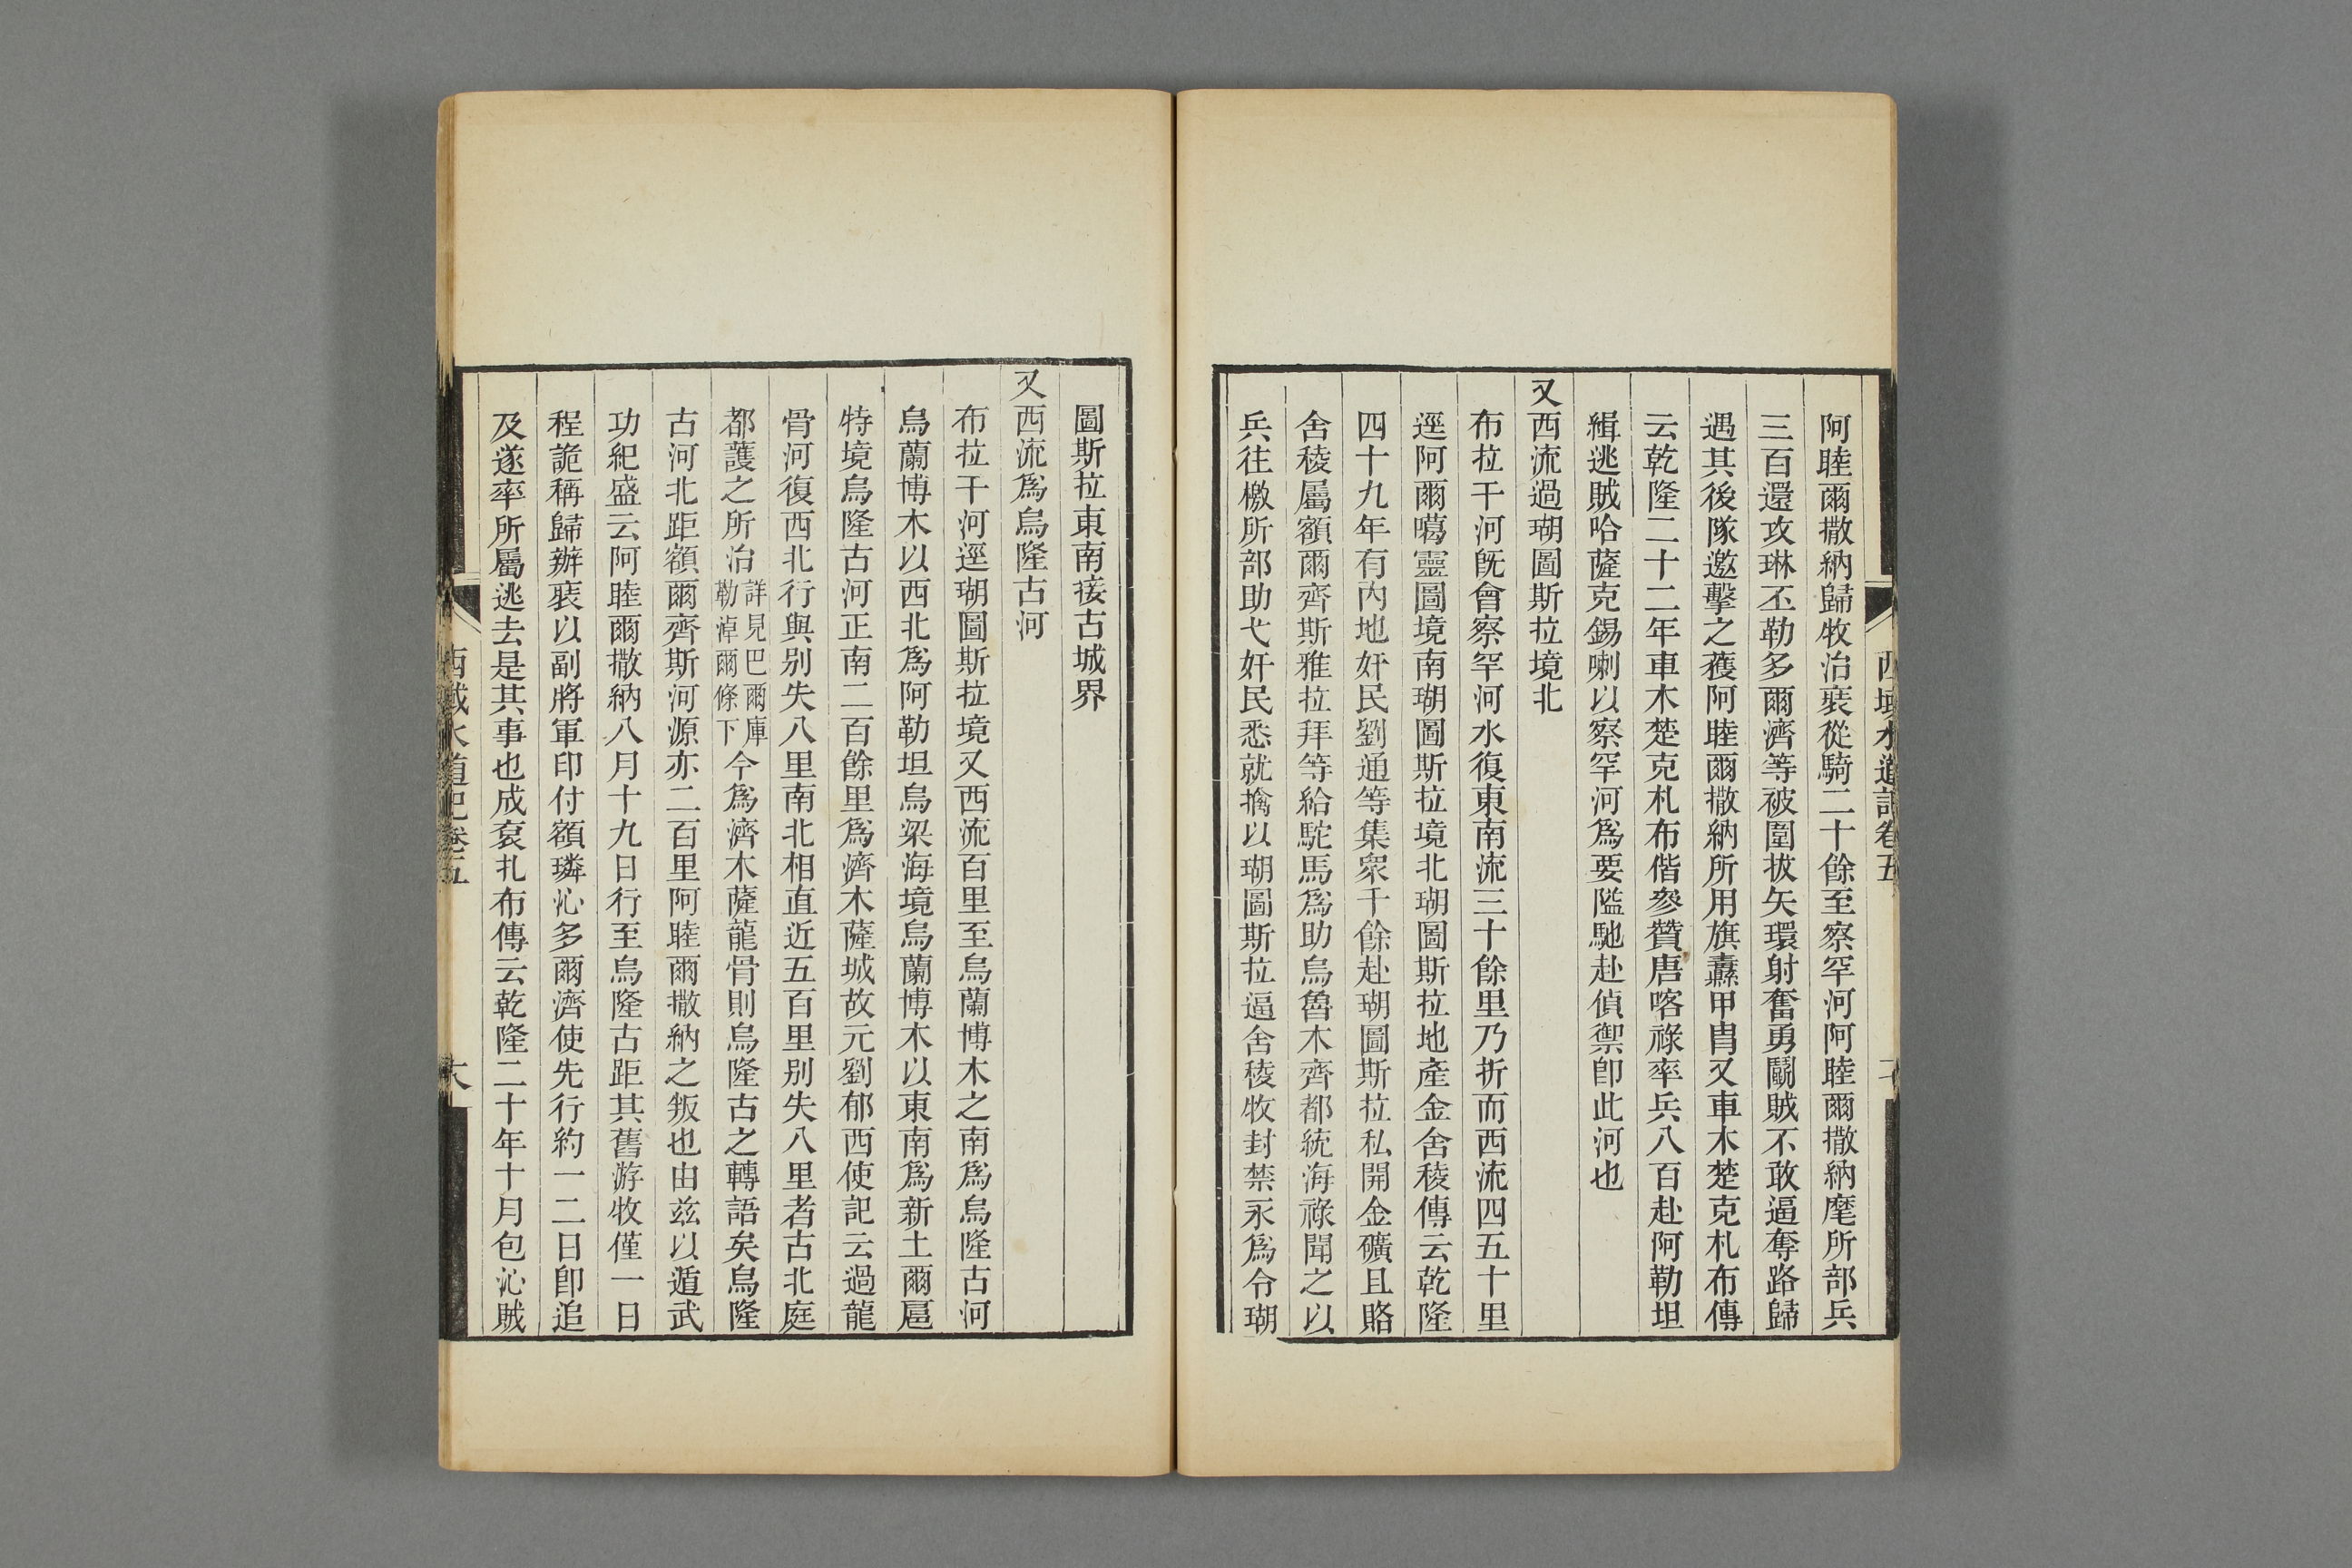 阿睦爾撒納歸牧治裝從騎二十餘至察罕河阿睦爾撒納麾所部兵
三百還攻琳丕勒多爾濟等被圍拔矢環射奮勇鬭賊不敢逼奪路歸
遇其後隊邀擊之穫阿睦爾撒納所用旗纛甲冑又車木楚克札布傳
云乾隆二十二年車木楚克札布偕參贊唐喀祿率兵八百赴阿勒坦
緝逃賊哈薩克錫喇以察罕河爲要隘馳赴偵禦卽此河也
又西流過瑚圖斯拉境北
布拉干河旣會察罕河水復東南流三十餘里乃折而西流四五十里
逕阿爾噶靈圖境南瑚圖斯拉境北瑚圖斯拉地產金舍稜傳云乾隆
四十九年有內地奸民劉通等集衆千餘赴瑚圖斯拉私開金礦且賂
舍稜屬額爾齊斯雅拉拜等給駝馬爲助烏魯木齊都統海祿聞之以
兵往檄所部助弋奸民悉就擒以瑚圖斯拉逼舍稜牧封禁永爲令瑚
西域水道記卷五
圖斯拉東南接古城界
又西流爲烏隆古河
布拉干河逕瑚圖斯拉境又西流百里至烏蘭博木之南爲烏隆古河
烏蘭博木以西北爲阿勒坦烏梁海境烏蘭博木以東南爲新土爾扈
特境烏隆古河正南二百餘里爲濟木薩城故元劉郁西使記云過龍
骨河復西北行與別失八里南北相直近五百里別失八里者古北庭
都護之所治詳見巴爾庫勒淖爾條下今爲濟木薩龍骨則烏隆古之轉語矣烏隆
古河北距額爾齊斯河源亦二百里阿睦爾撒納之叛也由茲以遁武
功紀盛云阿睦爾撒納八月十九日行至烏隆古距其舊游牧僅一日
程詭稱歸辦裝以副將軍印付額璘沁多爾濟使先行約一二日卽追
及遂率所屬逃去是其事也成袞扎布傳云乾隆二十年十月包沁賊
西域水道記卷五